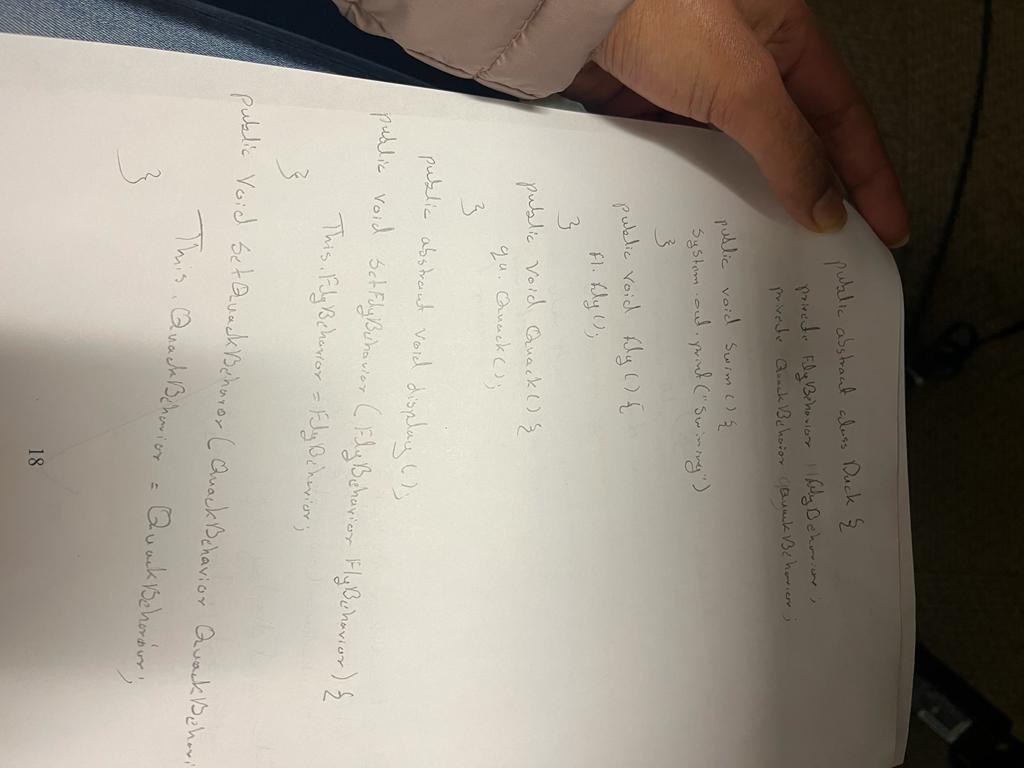 public abstract class Duck {
private FlyBehavior FlyBehavior;
private QuackBehavior QuackBehavior;
public void swim() {
System.out.print("Swiming")
}
public void fly() {
fl.fly();
}
public void Quack() {
qu.Quack();
}
public abstract void display();
public void SetFlyBehavior(FlyBehavior FlyBehavior) {
This.FlyBehavior = FlyBehavior;
}
public void SetQuackBehavior(QuackBehavior QuackBehavi
This.QuackBehavior = QuackBehavior;
}
18